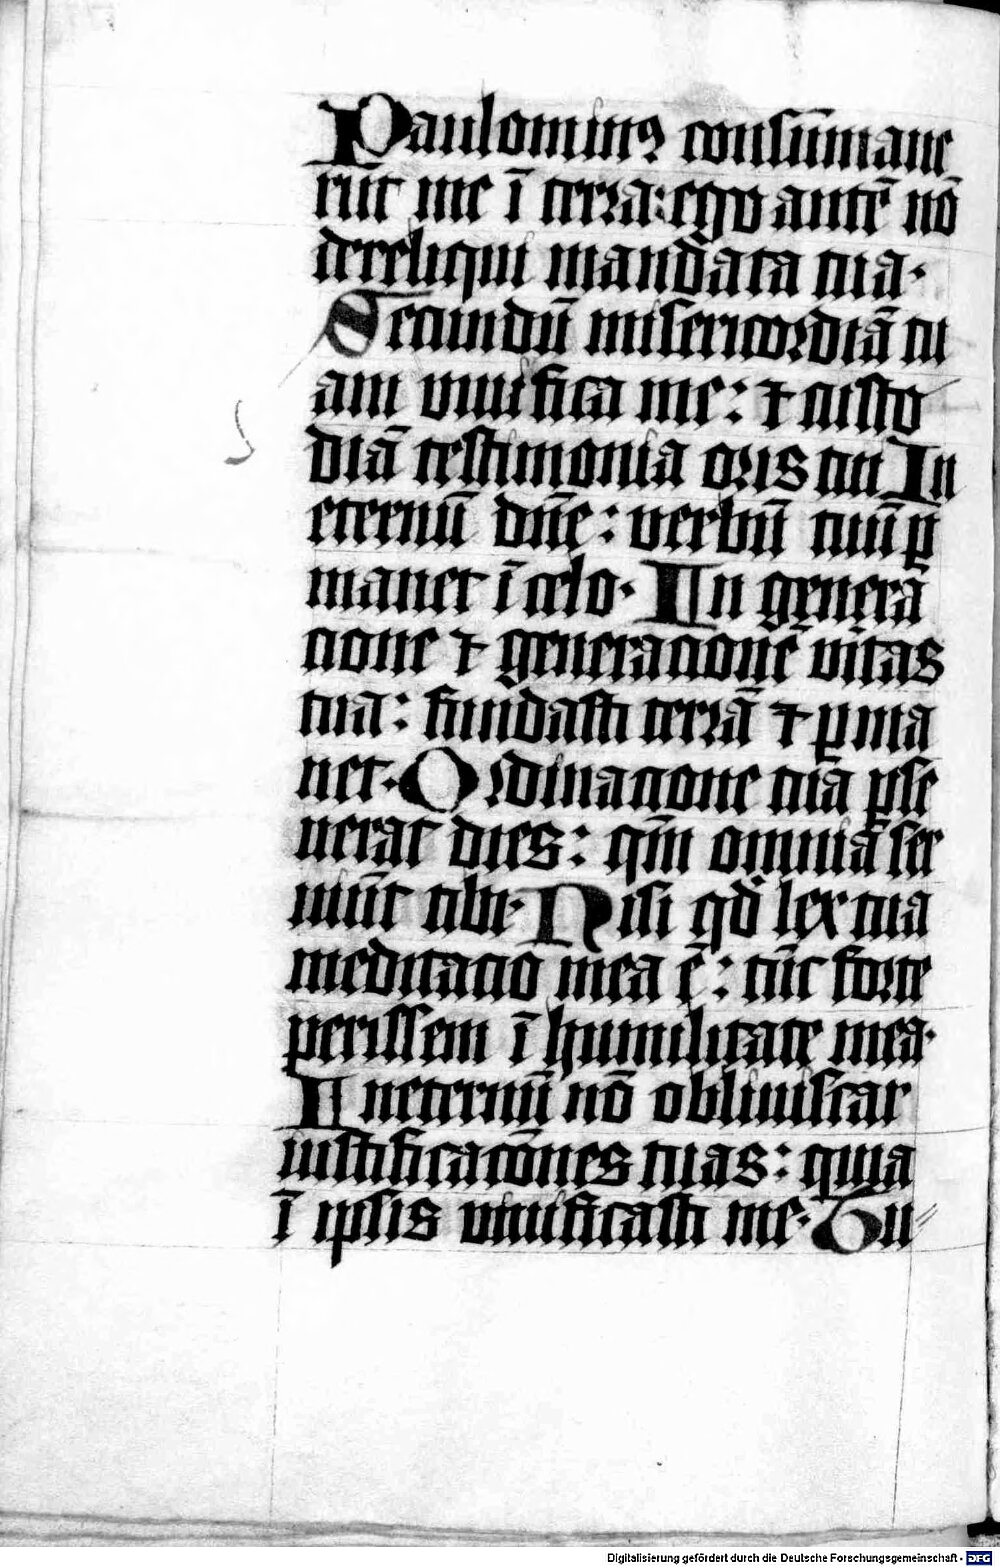 Paulominꝯ consũmaue
rũt me ĩ terra: ego autẽ nõ
dereliqui mandata tua.
Secundũ misericordiã tu
am viuifica me: ⁊ custo
diã testimonia oris tui In
eternũ dñe: verbũ tuũ ꝑ
manet ĩ celo. In genera
cione ⁊ generacionẽ vitas
tua: fundasti terrã ⁊ ꝑma
net. Ordinacione tua ꝑse
uerat dies: qm̃ omnia ser
uiũt tibi. Nisi qđ lex tua
meditacio mea ẽ: tũc forte
perissem ĩ humilitate mea.
In eternũ nõ obliuiscar
iustificacões tuas: quia
ĩ ipsis viuificasti me. Tu
Digitalisierung gefördert durch die Deutsche Forschungsgemeinschaft - DFG